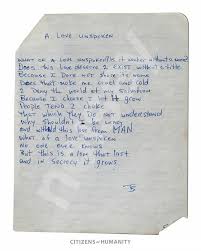 A LOVE UNSPOKEN
WHAT OF A LOVE UNSPOKEN? IS it weaker without a name?
Does this love deserve 2 exist without a title
Because I Dare not share its name
Does that make me cruel and cold
2 Deny the world of my salvation
Because I chose 2 let it grow
People TEND 2 choke
That which they do not understand
Why shouldn't I be wary
And withhold this love from MAN
What of a love unspoken
No one ever knows
But this is a love that lasts
and in secrecy it grows
CITIZENS of HUMANITY